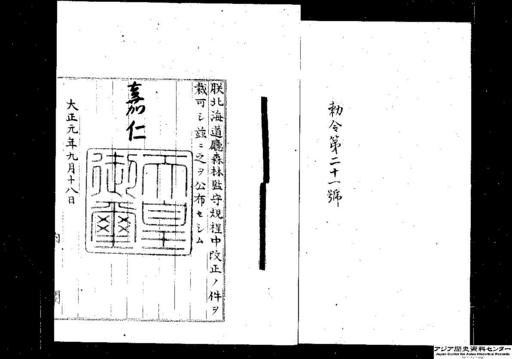 勅令第二十一號
朕北海道廳森林監守規程中改正ノ件ヲ
裁可シ茲ニ之ヲ公布セシム
嘉仁
天皇
御璽
大正元年九月十八日
内閣
アジア歴史資料センター
Japan Center for Asian Historical Records